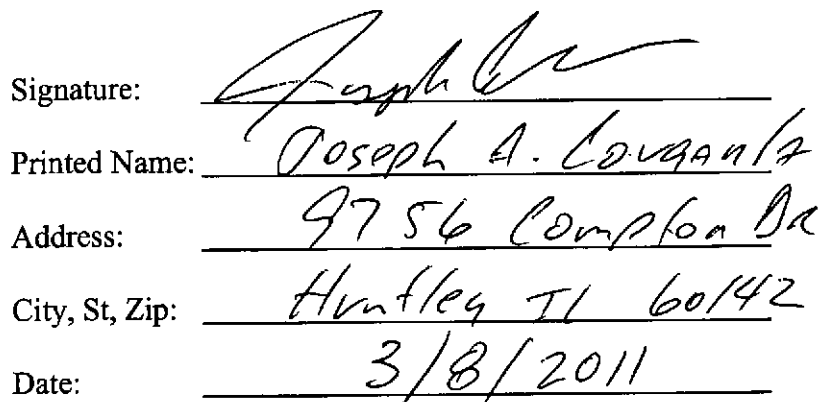 Signature: Joseph
Printed Name: Joseph A.
Address: 9756 Compton DR
City, St, Zip: Huntley Il 60142
Date: 3/8/2011